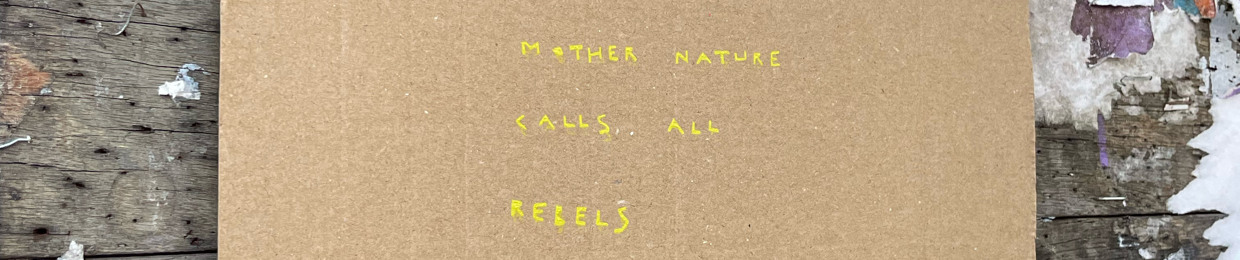 MOTHER NATURE
CALLS, ALL
REBELS